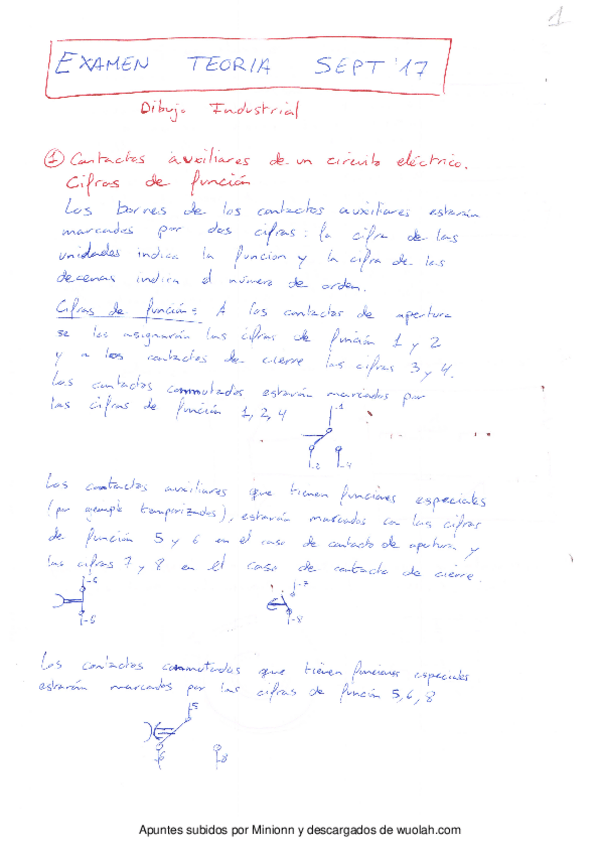 1
EXAMEN TEORIA SEPT '17
Dibujo Industrial
① Contactos auxiliares de un circuito eléctrico.
Cifras de función
Los bornes de los contactos auxiliares estarán
marcados por dos cifras: la cifra de las
unidades indica la función y la cifra de las
decenas indica el número de orden.
Cifras de función: A los contactos de apertura
se les asignarán las cifras de función 1 y 2
y a los contactos de cierre las cifras 3 y 4.
Los contactos conmutados estarán marcados por
las cifras de función 1, 2, 4
-1
-2 -4
Los contactos auxiliares que tienen funciones especiales
(por ejemplo temporizados), estarán marcados con las cifras
de función 5 y 6 en el caso de contacto de apertura y
las cifras 7 y 8 en el caso de contacto de cierre.
-5 -7
-6 -8
Los contactos conmutados que tienen funciones especiales
estarán marcados por las cifras de función 5, 6, 8
5
6 8
Apuntes subidos por Minionn y descargados de wuolah.com